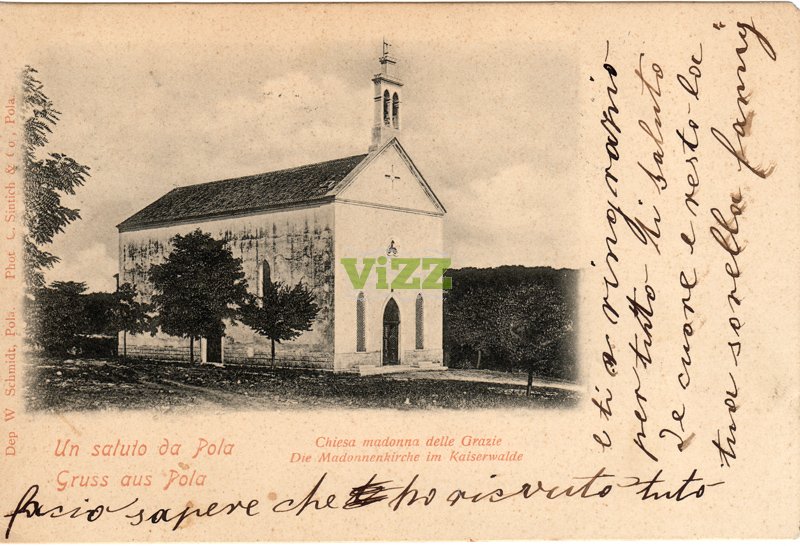 Dep. W. Schmidt, Pola. Phot. C. Sintich & Co., Pola.
VIZZ
Un saluto da Pola
Gruss aus Pola
Chiesa madonna delle Grazie
Die Madonnenkirche im Kaiserwalde
facio sapere che ho risevuto tuto
e ti ringrazio
per tutto ti saluto
de cuore e resto la
tua sorella fanny